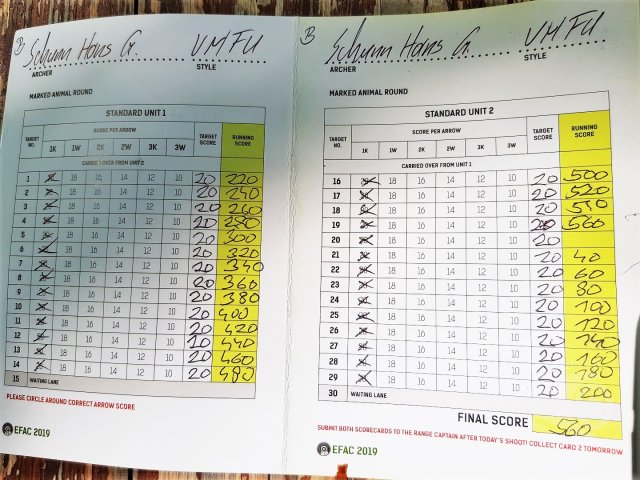 B Schunn Hans G. VMFU
ARCHER STYLE
MARKED ANIMAL ROUND
STANDARD UNIT 1
TARGET NO. SCORE PER ARROW TARGET SCORE RUNNING SCORE
1K 1W 2K 2W 3K 3W
CARRIED OVER FROM UNIT 2
1 18 16 14 12 10 20 220
2 18 16 14 12 10 20 240
3 18 16 14 12 10 20 260
4 18 16 14 12 10 20 280
5 18 16 14 12 10 20 300
6 18 16 14 12 10 20 320
7 18 16 14 12 10 20 340
8 18 16 14 12 10 20 360
9 18 16 14 12 10 20 380
10 18 16 14 12 10 20 400
11 18 16 14 12 10 20 420
12 18 16 14 12 10 20 440
13 18 16 14 12 10 20 460
14 18 16 14 12 10 20 480
15 WAITING LANE
PLEASE CIRCLE AROUND CORRECT ARROW SCORE
EFAC 2019
B Schunn Hans G. VMFU
ARCHER STYLE
MARKED ANIMAL ROUND
STANDARD UNIT 2
TARGET NO. SCORE PER ARROW TARGET SCORE RUNNING SCORE
1K 1W 2K 2W 3K 3W
CARRIED OVER FROM UNIT 1
16 18 16 14 12 10 20 500
17 18 16 14 12 10 20 520
18 18 16 14 12 10 20
19 18 16 14 12 10 20 560
20 18 16 14 12 10 20
21 18 16 14 12 10 20 40
22 18 16 14 12 10 20 60
23 18 16 14 12 10 20 80
24 18 16 14 12 10 20 100
25 18 16 14 12 10 20 120
26 18 16 14 12 10 20 140
27 18 16 14 12 10 20 160
28 18 16 14 12 10 20 180
29 18 16 14 12 10 20 200
30 WAITING LANE
FINAL SCORE 560
SUBMIT BOTH SCORECARDS TO THE RANGE CAPTAIN AFTER TODAY'S SHOOT! COLLECT CARD 2 TOMORROW
EFAC 2019